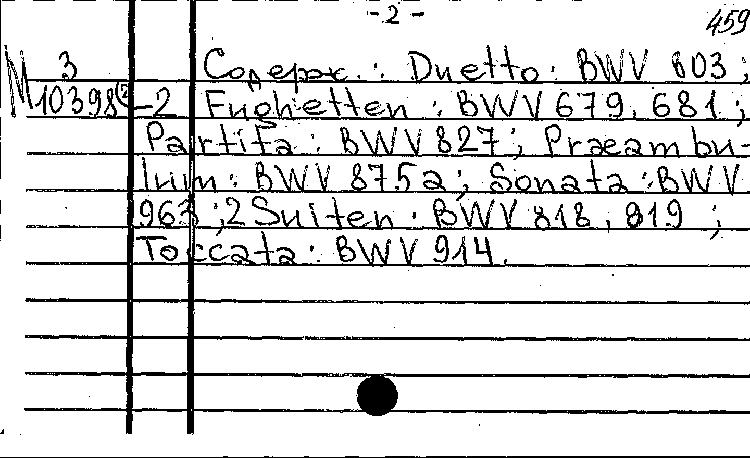 - 2 -
459
М 3 Содерж.: Duetto: BWV 803;
10398(2 -2 Fughetten: BWV 679, 681;
Partita: BWV 827; Præambu-
lum: BWV 875a; Sonata: BWV
963; 2 Suiten: BWV 818, 819;
Toccata: BWV 914.